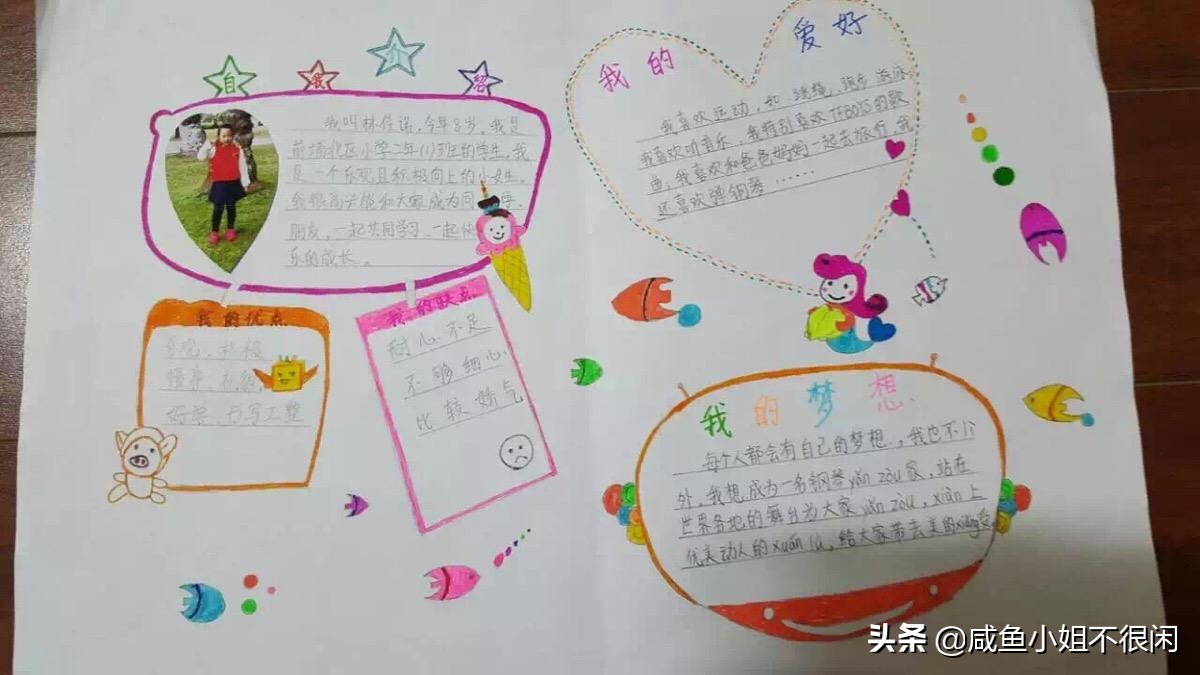 自我介绍
我叫林佳诺，今年8岁，我是
前埔北区小学二年(1)班的学生。我
是一个乐观且积极向上的小女生。
我很高兴能和大家成为同学，
朋友，一起共同学习，一起快
乐的成长。
我的爱好
我喜欢运动，如：跳绳，跑步，游泳
我喜欢听音乐，我特别喜欢TFBOYS的歌
曲，我喜欢和爸爸妈妈一起去旅行，我
还喜欢弹钢琴……
我的优点
乐观、积极
懂事、礼貌
好学、书写工整
我的缺点
耐心不足
不够细心
比较娇气
我的梦想
每个人都会有自己的梦想，我也不例
外。我想成为一名钢琴yǎn zòu家，站在
世界各地的舞台为大家yǎn zòu，xiàn上
优美动人的xuán lǜ，给大家带去美的xiǎng受
头条 @咸鱼小姐不很闲